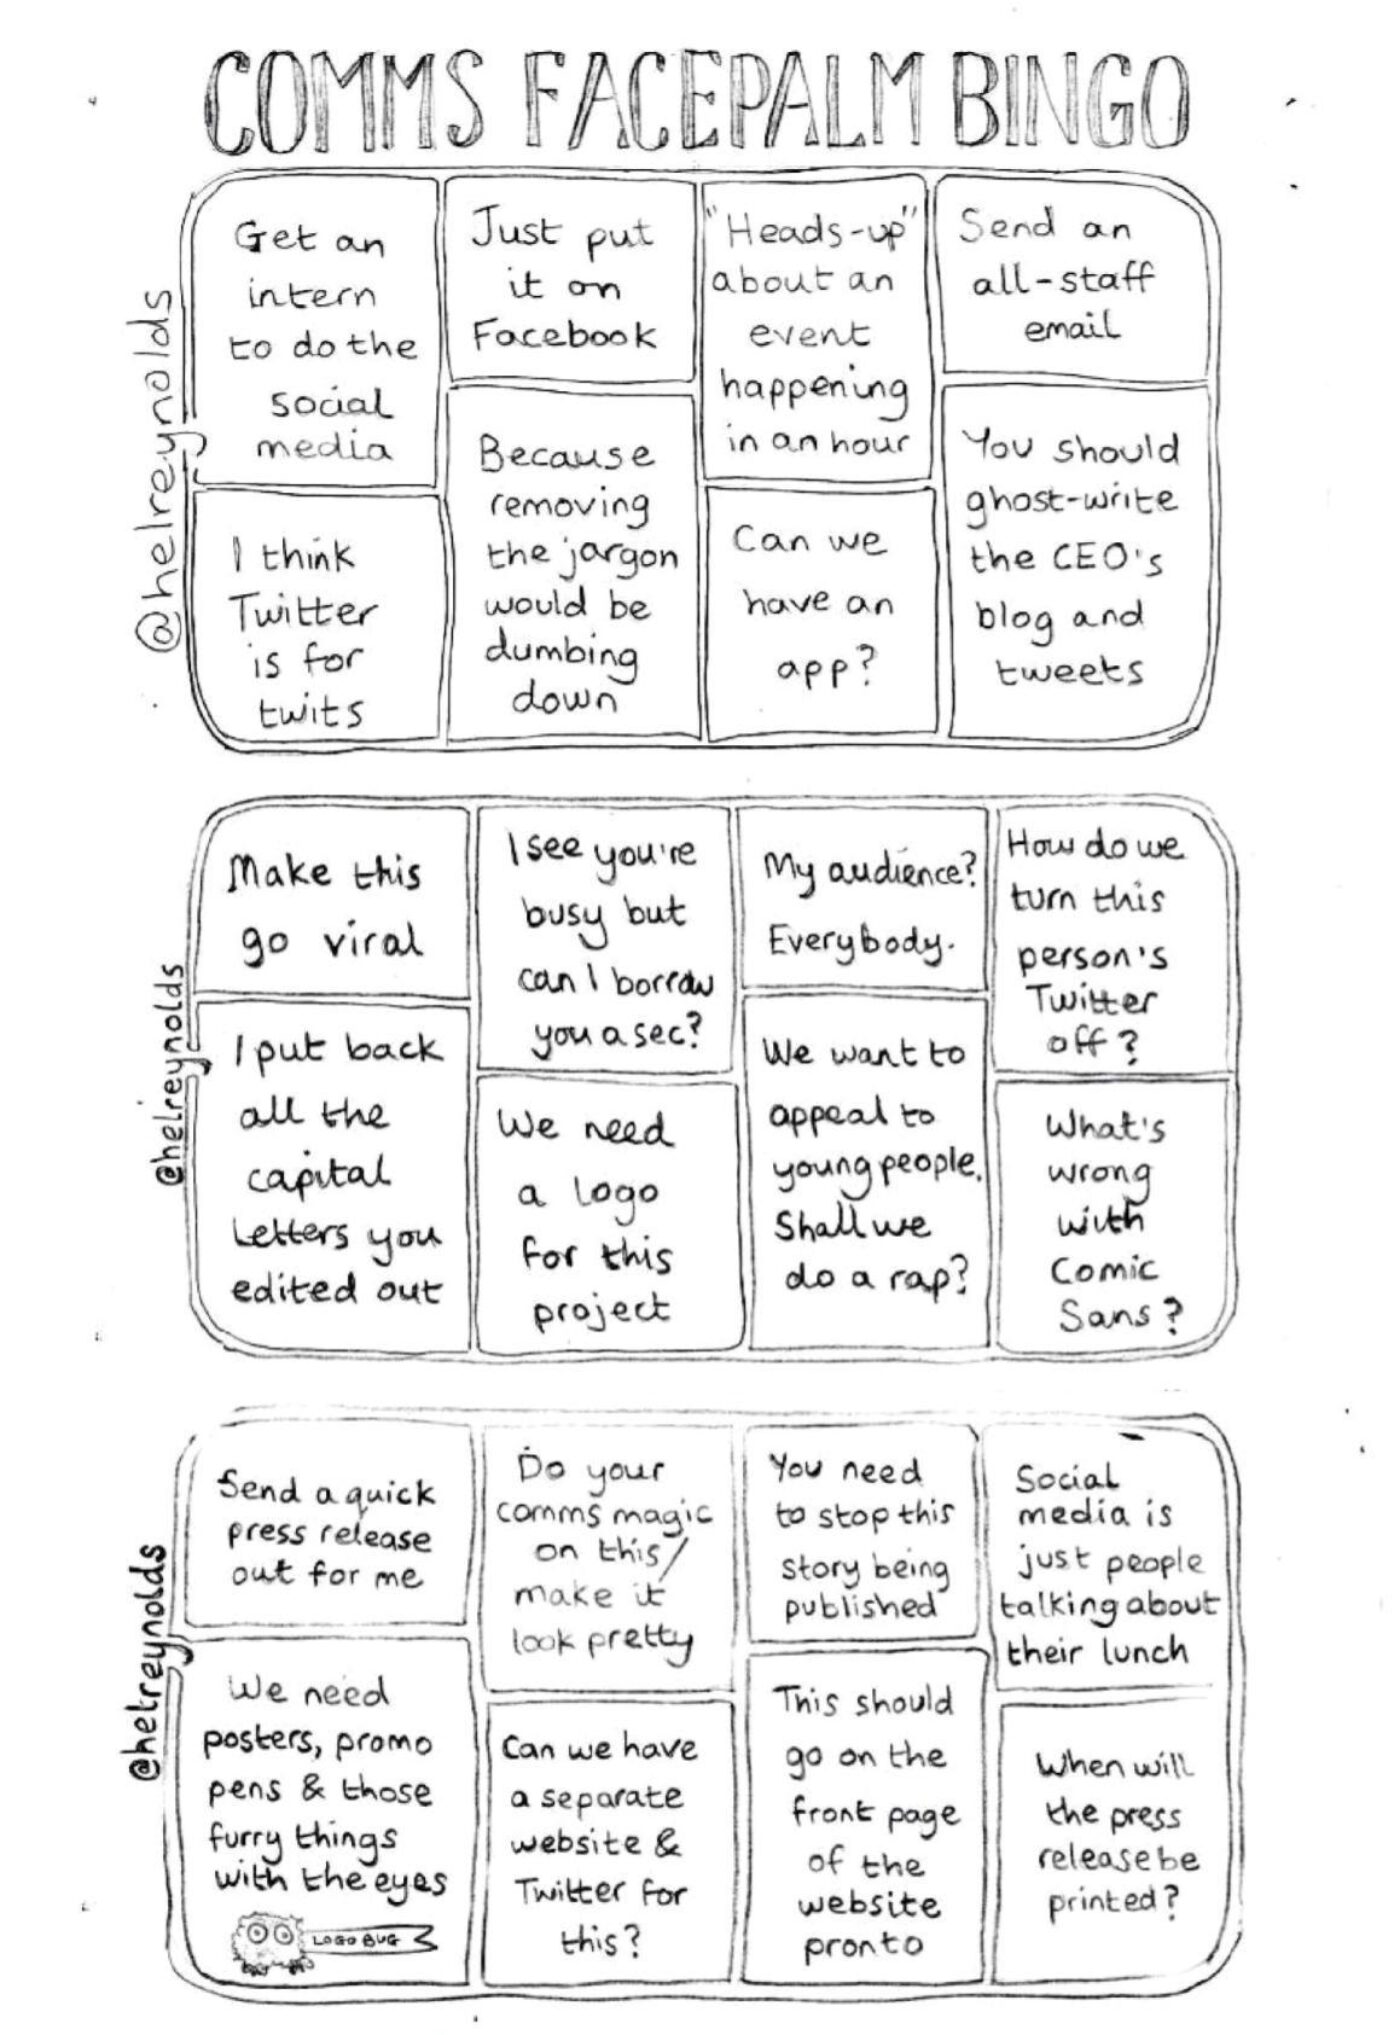 COMMS FACEPALM BINGO
@helreynolds
Get an
intern
to do the
social
media
Just put
it on
Facebook
"Heads-up"
about an
event
happening
in an hour
Send an
all-staff
email
I think
Twitter
is for
twits
Because
removing
the jargon
would be
dumbing
down
Can we
have an
app?
You should
ghost-write
the CEO's
blog and
tweets
@helreynolds
Make this
go viral
I see you're
busy but
can I borrow
you a sec?
My audience?
Everybody.
How do we
turn this
person's
Twitter
off?
I put back
all the
capital
Letters you
edited out
We need
a logo
for this
project
We want to
appeal to
young people.
Shall we
do a rap?
What's
wrong
with
Comic
Sans?
@helreynolds
Send a quick
press release
out for me
Do your
comms magic
on this/
make it
look pretty
You need
to stop this
story being
published
Social
media is
just people
talking about
their lunch
We need
posters, promo
pens & those
furry things
with the eyes
LOGO BUG
Can we have
a separate
website &
Twitter for
this?
This should
go on the
front page
of the
website
pronto
When will
the press
release be
printed?